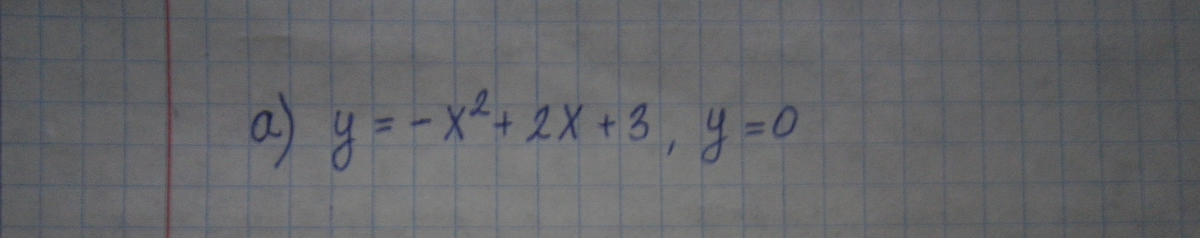 а) y = -x² + 2x + 3, y = 0